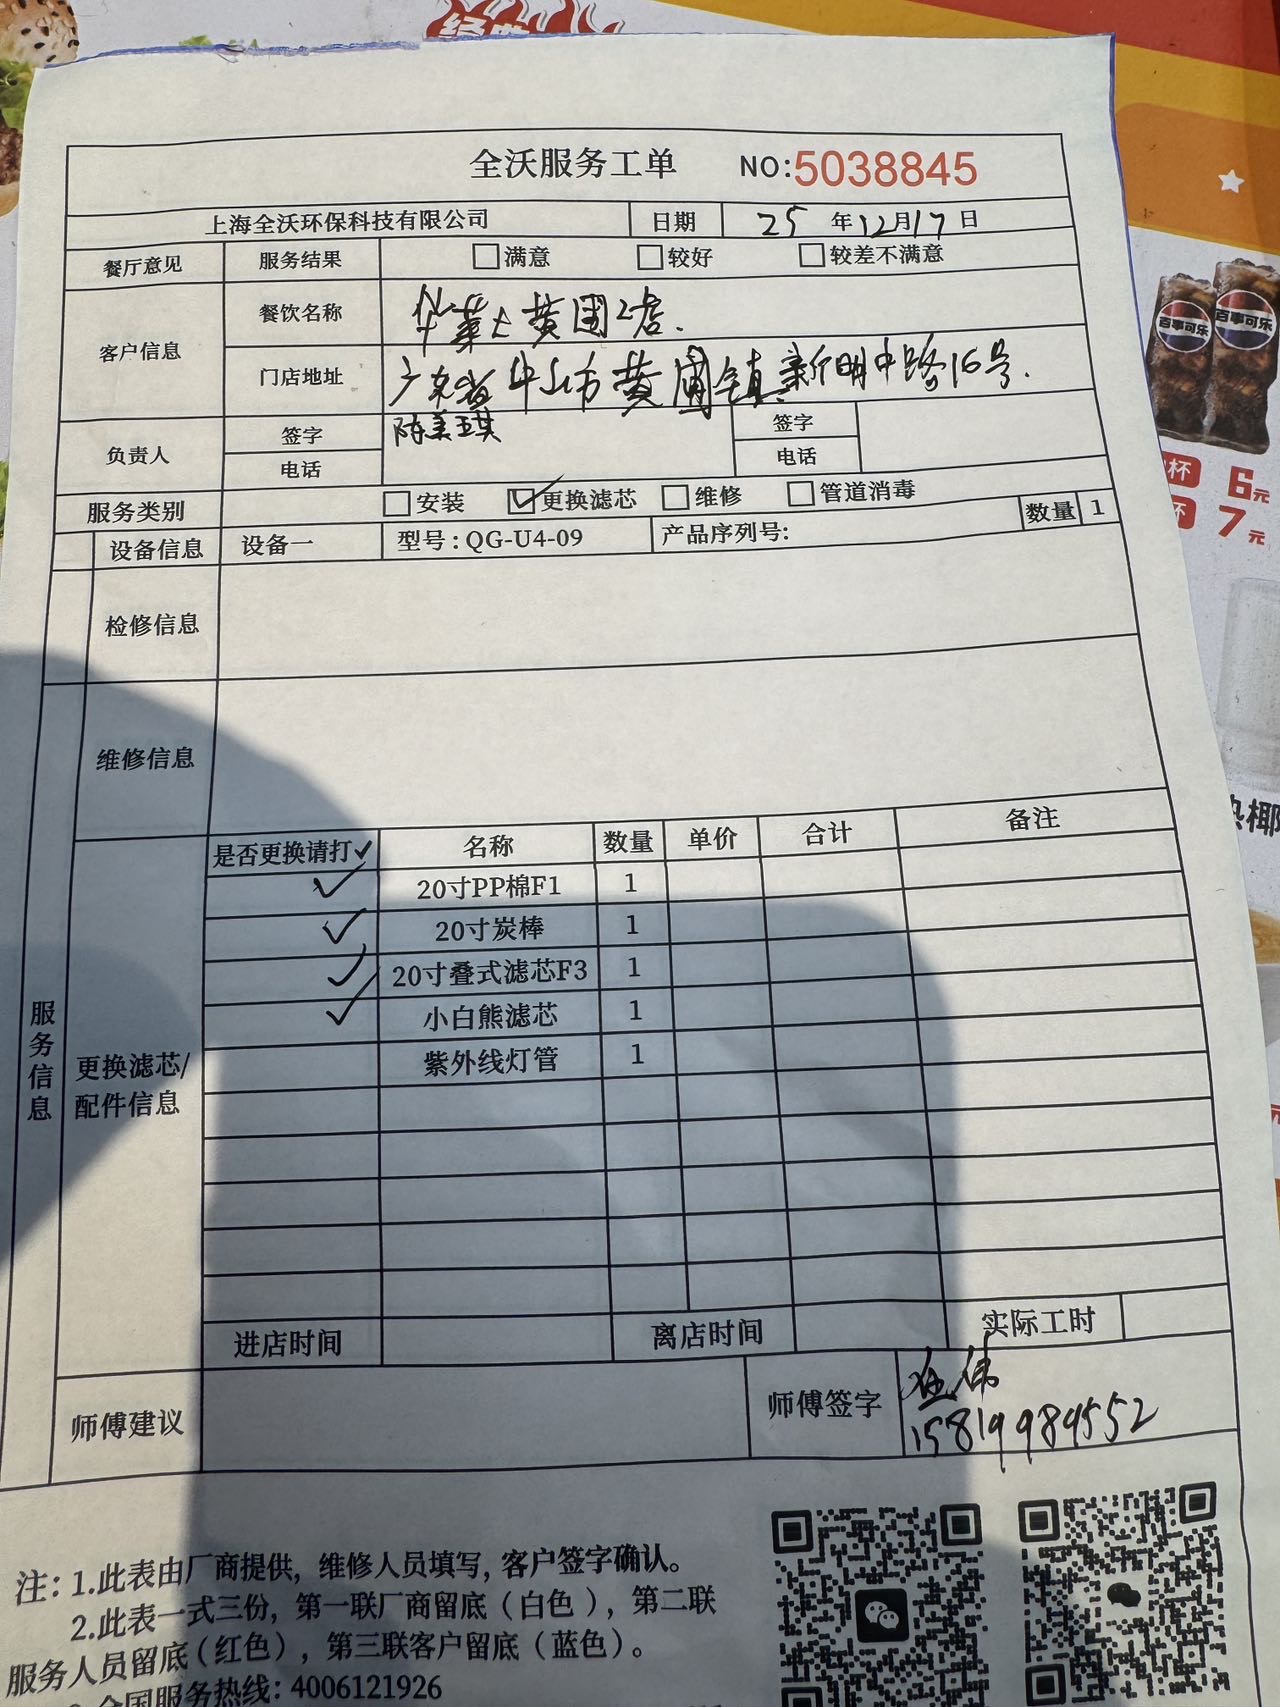 全沃服务工单 NO:5038845
上海全沃环保科技有限公司 日期 25 年 12月17日
餐厅意见 服务结果 满意 较好 较差不满意
客户信息 餐饮名称 华莱士黄圃2店.
门店地址 广东省中山市黄圃镇新明中路16号.
负责人 签字 陈美琪 签字
电话 电话
服务类别 安装 ✓更换滤芯 维修 管道消毒
设备信息 设备一 型号:QG-U4-09 产品序列号: 数量 1
检修信息
维修信息
服务信息
更换滤芯/
配件信息
是否更换请打✓ 名称 数量 单价 合计 备注
✓ 20寸PP棉F1 1
✓ 20寸炭棒 1
✓ 20寸叠式滤芯F3 1
✓ 小白熊滤芯 1
紫外线灯管 1
进店时间 离店时间 实际工时
师傅建议 师傅签字 伟
15819989552
注:1.此表由厂商提供,维修人员填写,客户签字确认。
2.此表一式三份,第一联厂商留底(白色),第二联
服务人员留底(红色),第三联客户留底(蓝色)。
全国服务热线:4006121926
百事可乐
百事可乐
杯 6元
杯 7元
椰